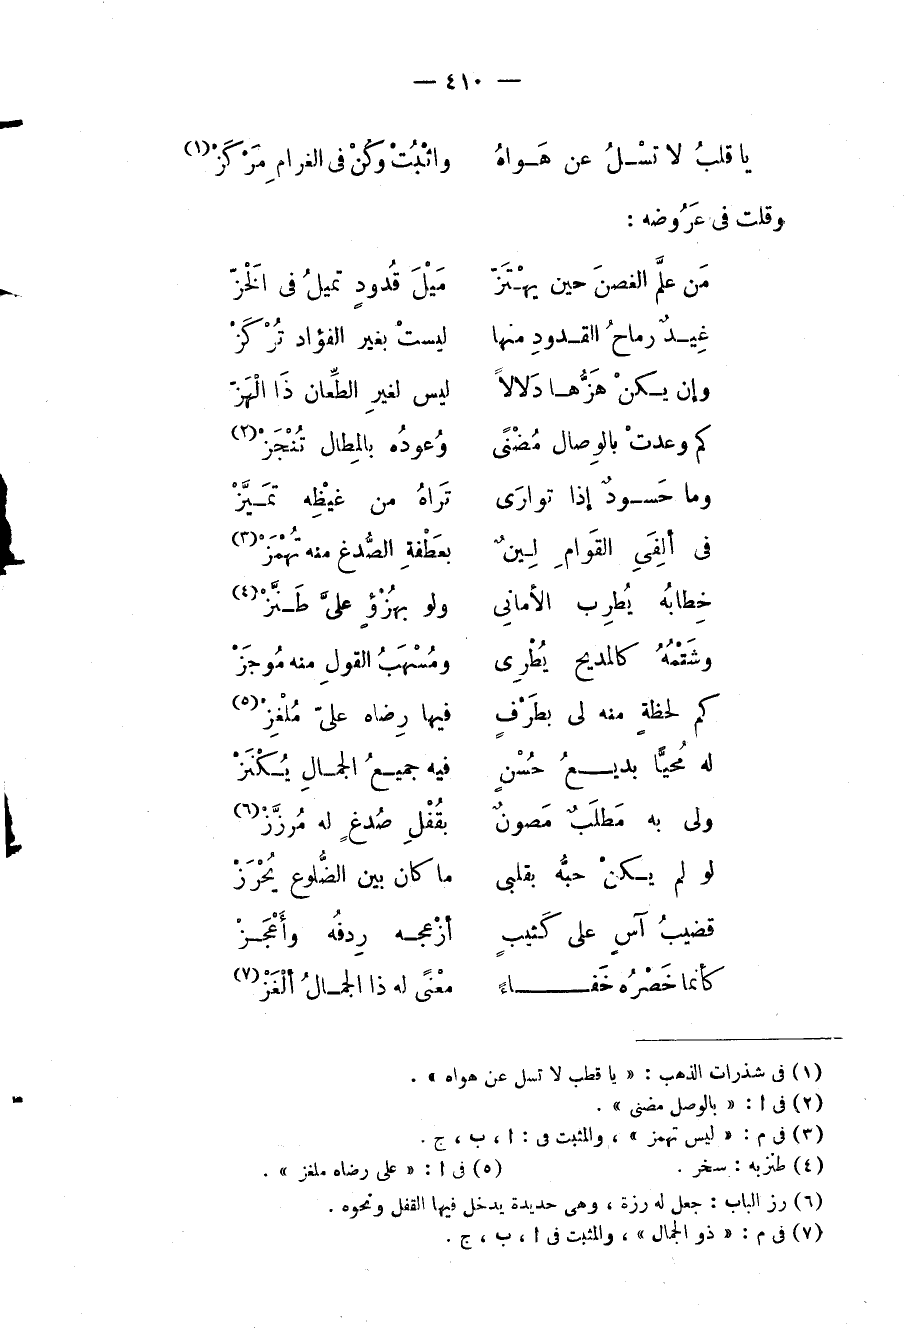 — ٤١٠ —
يا قلبُ لا تسْـلُ عن هَـواهُ واثْبُتْ وكُنْ فى الغرامِ مَرْكَزْ (١)
وقلت فى عَرُوضه :
مَن علَّم الغصنَ حين يهْـتَزّ مَيْلَ قُدودٍ تميلُ فى الَخْزّ
غِيـدٌ رماحُ القـدودِ منها ليستْ بغير الفؤاد تُرْكَزْ
وإن يـكنْ هَزُّهـا دَلالاً ليس لغيرِ الطِّعان ذَا الْهَزّ
كم وعدتْ بالوِصال مُضْنًى وُعودُه بالمِطال تُنْجَزْ (٢)
وما حَسـودٌ إذا توارَى تَراهُ من غيْظِه تمَـيَّزْ
فى ألِفىِّ القَوامِ لِـينٌ بعَطْفةِ الصُّدغ منه تُهْمَزْ (٣)
خِطابُه يُطرِب الأمانى ولو بهُزْؤٍ علىَّ طَـنَّزْ (٤)
وشَتْمُهُ كالمديح يُطْرِى ومُسْهَبُ القولِ منه مُوجَزْ
كم لحظةٍ منه لى بطَرْفٍ فيها رِضاه علىّ مُلْغِزْ (٥)
له مُحيًّا بديـعُ حُسْنٍ فيه جميـعُ الجمـالِ يُـكْنَزْ
ولى به مَطلَبٌ مَصونٌ بقُفْلِ صُدغٍ له مُرزَّزْ (٦)
لو لم يـكنْ حبُّه بقلبى ما كان بين الضُّلوع يُحْرَزْ
قضيبُ آسٍ على كَثيبٍ أزْعجـه رِدفُه وأعْجَـزْ
كأنما خَصْرُه خَفَـــاءً معْنًى له ذا الجمـالُ ألْغَزْ (٧)
(١) فى شذرات الذهب : « يا قطب لا تسل عن هواه » .
(٢) فى ا : « بالوصل مضنى » .
(٣) فى م : « ليس تهمز » ، والمثبت فى : ا ، ب ، ج .
(٤) طنز به : سخر . (٥) فى ا : « على رضاه ملغز » .
(٦) رز الباب : جعل له رزة ، وهى حديدة يدخل فيها القفل ونحوه .
(٧) فى م : « ذو الجمال » ، والمثبت فى ا ، ب ، ج .